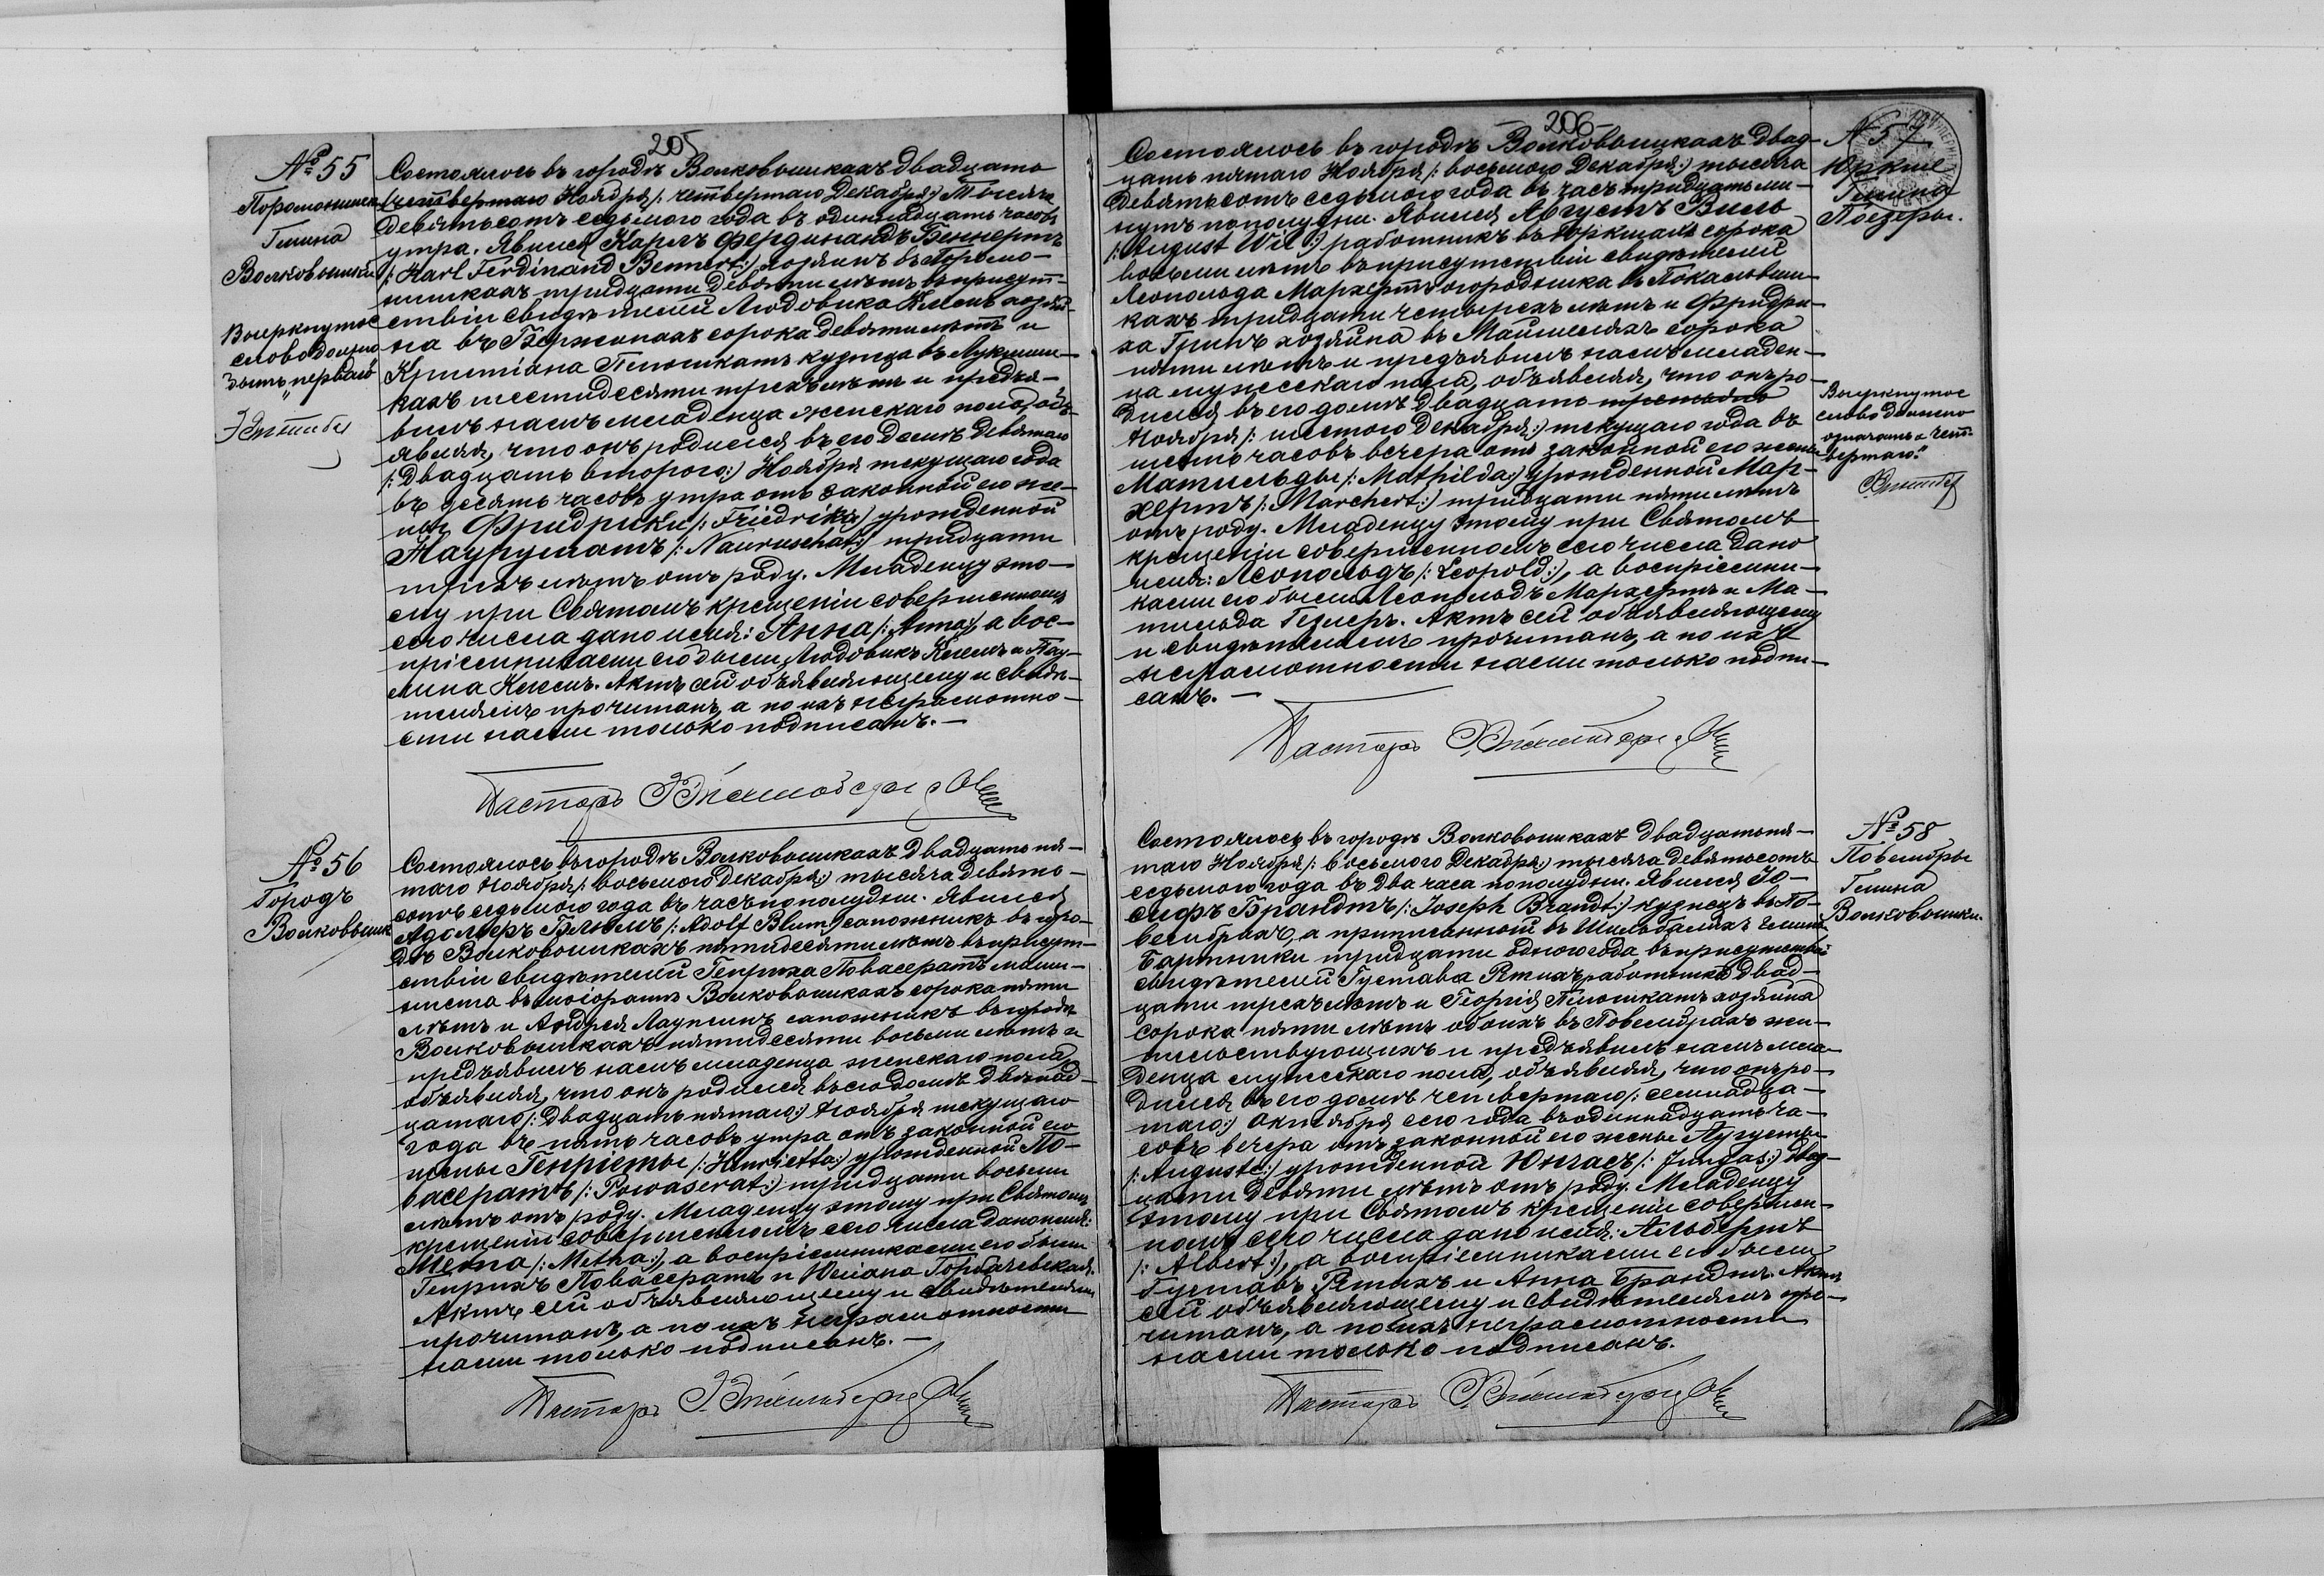 205
№ 55
Гмина
Волковышки
Вычеркнутое
слово должно
быть „первый“
Состоялось въ городѣ Волковышкахъ двадцать
четвертаго Ноября /: четвертаго Декабря:/ тысяча
девятьсотъ седьмого года въ одиннадцать часовъ
утра. Явился Карлъ Фердинандъ Беннертъ
/: Karl Ferdinand Bennert:/ хозяинъ въ
тридцати девяти лѣтъ въ присут-
ствіи свидѣтелей Людовика Клемъ хозяи-
на въ сорока девяти лѣтъ и
Христіана Плошкатъ кузнеца въ
кахъ шестидесяти трехъ лѣтъ и предъя-
вилъ намъ младенца женскаго пола, объ-
являя, что онъ родился въ его домѣ девятаго
/: двадцать второго:/ Ноября текущаго года
въ десять часовъ утра отъ законной его же-
ны Фридрики /: Friedrika:/ урожденной
Наурушатъ /: Nauruschat:/ тридцати
трехъ лѣтъ отъ роду. Младенцу это-
му при Святомъ крещеніи совершенномъ
сего числа дано имя: Анна /: Anna:/, а вос-
пріемниками его были Людовикъ Клемъ и Пау-
лина Клемъ. Актъ сей объявляющему и свидѣ-
телямъ прочитанъ, а по ихъ неграмотно-
сти нами только подписанъ. —
Пасторъ
№ 56
Городъ
Волковышки
Состоялось въ городѣ Волковышкахъ двадцать пя-
таго Ноября /: восьмого Декабря:/ тысяча девять-
сотъ седьмого года въ часъ пополудни. Явился
Адольфъ Блюмъ /: Adolf Blum:/ сапожникъ въ горо-
дѣ Волковышкахъ пятидесяти лѣтъ въ присут-
ствіи свидѣтелей Генриха Повасератъ маши-
ниста въ Волковышкахъ сорока пяти
лѣтъ и Андрея сапожникъ въ городѣ
Волковышкахъ пятидесяти восьми лѣтъ и
предъявилъ намъ младенца женскаго пола,
объявляя, что онъ родился въ его домѣ двѣнад-
цатаго /: двадцать пятаго:/ Ноября текущаго
года въ пять часовъ утра отъ законной его
жены Генріеты /: Henrietta:/ урожденной По-
васератъ /: Powaserat:/ тридцати восьми
лѣтъ отъ роду. Младенцу этому при Святомъ
крещеніи совершенномъ сего числа дано имя:
Мета /: Metha:/, а воспріемниками его были
Генрихъ Повасератъ и Юліана Горбачевская.
Актъ сей объявляющему и свидѣтелямъ
прочитанъ, а по ихъ неграмотности
нами только подписанъ. —
Пасторъ
206
№ 57
Юркше
Гмина
Поезеры.
Вычеркнутое
слово должно
означать „чет-
вертаго.“
Состоялось въ городѣ Волковышкахъ двад-
цать пятаго Ноября /: восьмого Декабря:/ тысяча
девятьсотъ седьмого года въ часъ тридцать ми-
нутъ пополудни. Явился Августъ Виль
/: August Wil:/ работникъ въ Юркшахъ сорока
восьми лѣтъ въ присутствіи свидѣтелей
Леопольда Мархертъ огородника въ
кахъ тридцати четырехъ лѣтъ и Фридри-
ха Гринъ хозяина въ сорока
пяти лѣтъ и предъявилъ намъ младен-
ца мужескаго пола, объявляя, что онъ ро-
дился въ его домѣ двадцать третьяго
Ноября /: шестого Декабря:/ текущаго года въ
шесть часовъ вечера отъ законной его жены
Матильды /: Mathilda:/ урожденной Мар-
хертъ /: Marchert:/ тридцати пяти лѣтъ
отъ роду. Младенцу этому при Святомъ
крещеніи совершенномъ сего числа дано
имя: Леопольдъ /: Leopold:/, а воспріемни-
ками его были Леопольдъ Мархертъ и Ма-
тильда Актъ сей объявляющему
и свидѣтелямъ прочитанъ, а по ихъ
неграмотности нами только подпи-
санъ. —
Пасторъ
№ 58
Повембры
Гмина
Волковышки.
Состоялось въ городѣ Волковышкахъ двадцать пя-
таго Ноября /: восьмого Декабря:/ тысяча девятьсотъ
седьмого года въ два часа пополудни. Явился Іо-
сифъ Брандтъ /: Joseph Brandt:/ кузнецъ въ По-
вембрахъ, а приписанный въ гмины
Бартники тридцати одного года въ присутствіи
свидѣтелей Густава работника двад-
цати трехъ лѣтъ и Георгія Плошкатъ хозяина
сорока пяти лѣтъ обоихъ въ Повембрахъ жи-
тельствующихъ и предъявилъ намъ мла-
денца мужескаго пола, объявляя, что онъ ро-
дился въ его домѣ четвертаго /: семнадца-
таго:/ Октября сего года въ одиннадцать ча-
совъ вечера отъ законной его жены Аугусты
/: Auguste:/ урожденной Юнгасъ /: Jungas:/ двад-
цати девяти лѣтъ отъ роду. Младенцу
этому при Святомъ крещеніи совершен-
номъ сего числа дано имя: Альбертъ
/: Albert:/, а воспріемниками его были
Густавъ и Анна Брандтъ. Актъ
сей объявляющему и свидѣтелямъ про-
читанъ, а по ихъ неграмотности
нами только подписанъ.
Пасторъ